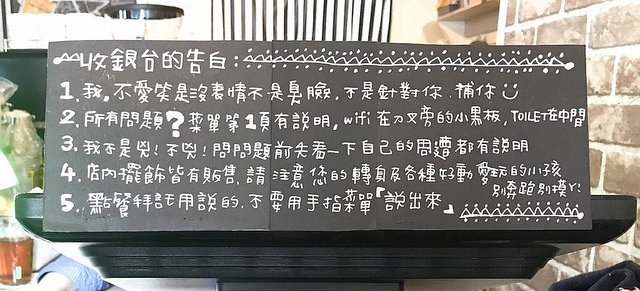 收銀台的告白:
1. 我,不愛笑是沒表情不是臭臉,不是針對你.補你
2. 所有問題?菜單第1頁有說明,wifi在刀叉旁的小黑板,TOILET在中間
3. 我不是兇!不兇!問問題前先看一下自己的周遭都有說明
4. 店內擺飾皆有販售,請注意您的轉身及各種好動愛玩的小孩
別奔跑別摸!:
5. 點餐拜託用說的.不要用手指菜單「說出來」